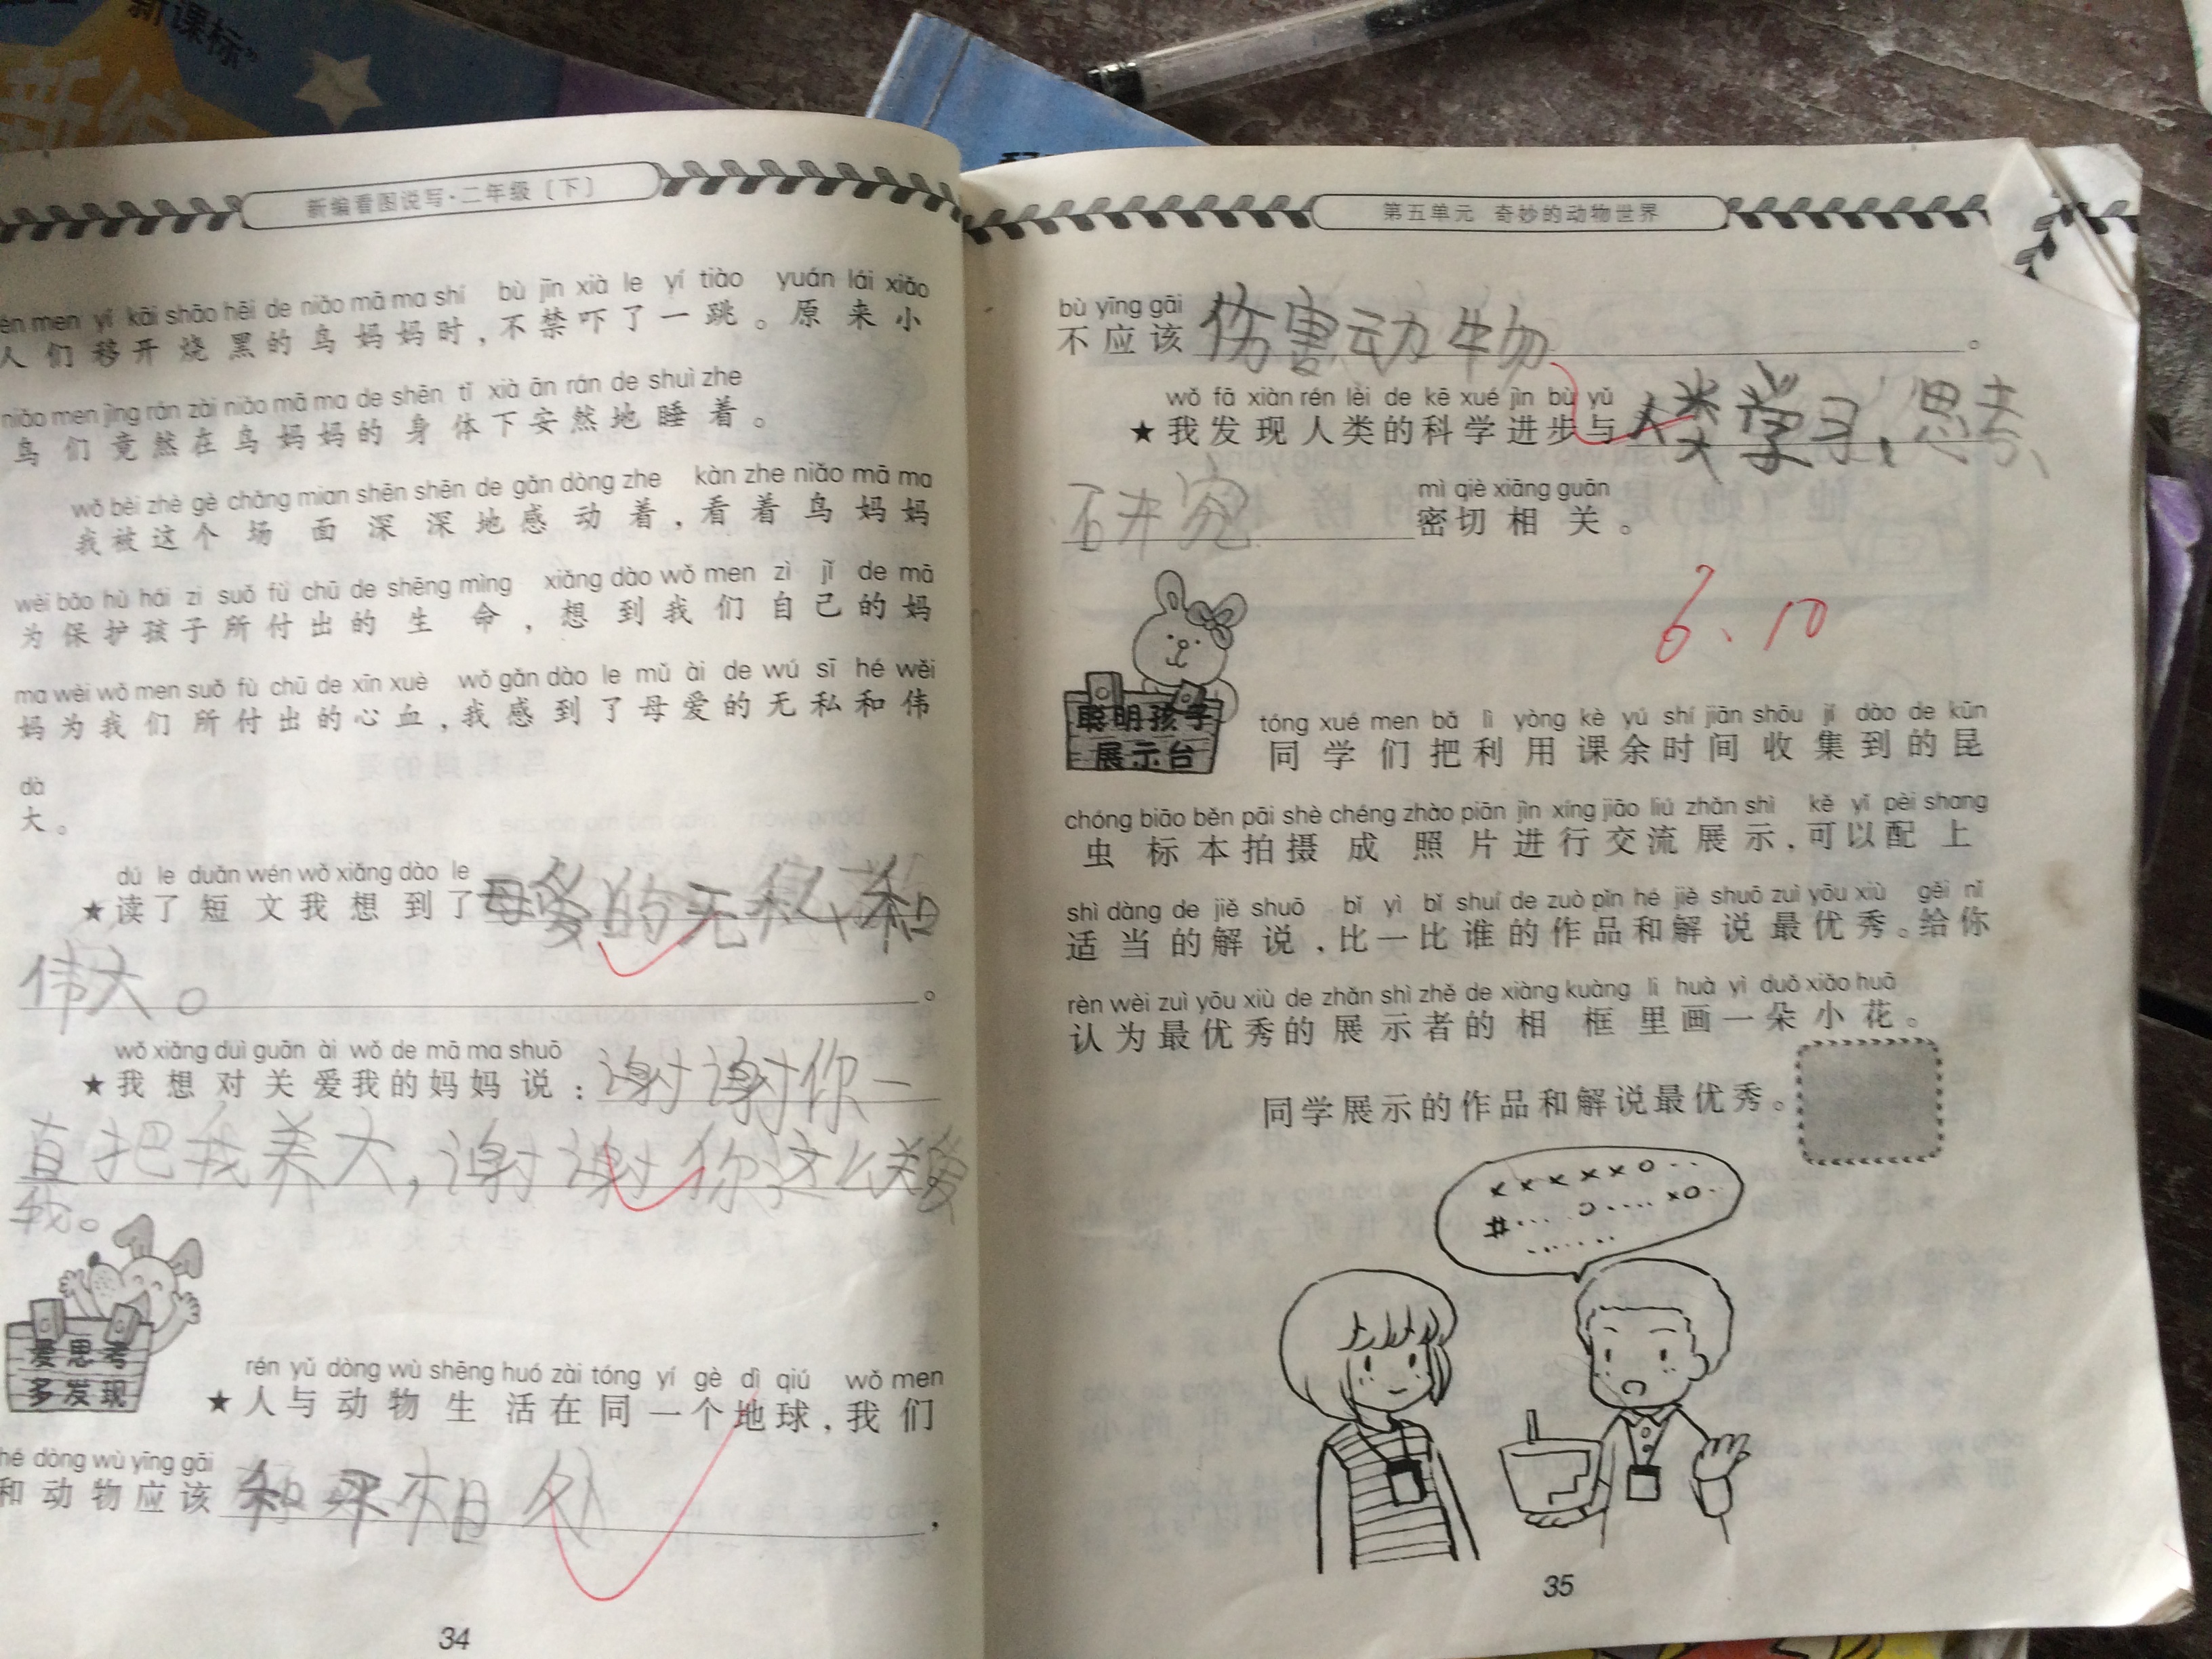 新课标”
新编
新编看图说写·二年级〔下〕
én men yí kāi shāo hēi de niǎo mā ma shí bù jīn xià le yí tiào yuán lái xiǎo
人们移开烧黑的鸟妈妈时，不禁吓了一跳。原来小
niǎo men jìng rán zài niǎo mā ma de shēn tǐ xià ān rán de shuì zhe
鸟们竟然在鸟妈妈的身体下安然地睡着。
wǒ bèi zhè gè chǎng mian shēn shēn de gǎn dòng zhe kàn zhe niǎo mā ma
我被这个场面深深地感动着，看着鸟妈妈
wèi bǎo hù hái zi suǒ fù chū de shēng mìng xiǎng dào wǒ men zì jǐ de mā
为保护孩子所付出的生命，想到我们自己的妈
ma wèi wǒ men suǒ fù chū de xīn xuè wǒ gǎn dào le mǔ ài de wú sī hé wěi
妈为我们所付出的心血，我感到了母爱的无私和伟
dà
大。
dú le duǎn wén wǒ xiǎng dào le
★读了短文我想到了母爱的无私和
伟大。。
wǒ xiǎng duì guān ài wǒ de mā ma shuō
★我想对关爱我的妈妈说：谢谢你一
直把我养大，谢谢你这么关爱
我。
爱思考
多发现
rén yǔ dòng wù shēng huó zài tóng yí gè dì qiú wǒ men
★人与动物生活在同一个地球，我们
hé dòng wù yīng gāi
和动物应该和平相处，
34
第五单元 奇妙的动物世界
bù yīng gāi
不应该伤害动物。
wǒ fā xiàn rén lèi de kē xué jìn bù yǔ
★我发现人类的科学进步与人类学习，思考
mì qiè xiāng guān
研究密切相关。
6、10
聪明孩子
展示台
tóng xué men bǎ lì yòng kè yú shí jiān shōu jí dào de kūn
同学们把利用课余时间收集到的昆
chóng biāo běn pāi shè chéng zhào piān jìn xíng jiāo liú zhǎn shì kě yǐ pèi shang
虫标本拍摄成照片进行交流展示，可以配上
shì dàng de jiě shuō bǐ yì bǐ shuí de zuò pǐn hé jiě shuō zuì yōu xiù gěi nǐ
适当的解说，比一比谁的作品和解说最优秀。给你
rèn wèi zuì yōu xiù de zhǎn shì zhě de xiàng kuàng lǐ huà yì duǒ xiǎo huā
认为最优秀的展示者的相框里画一朵小花。
同学展示的作品和解说最优秀。
35